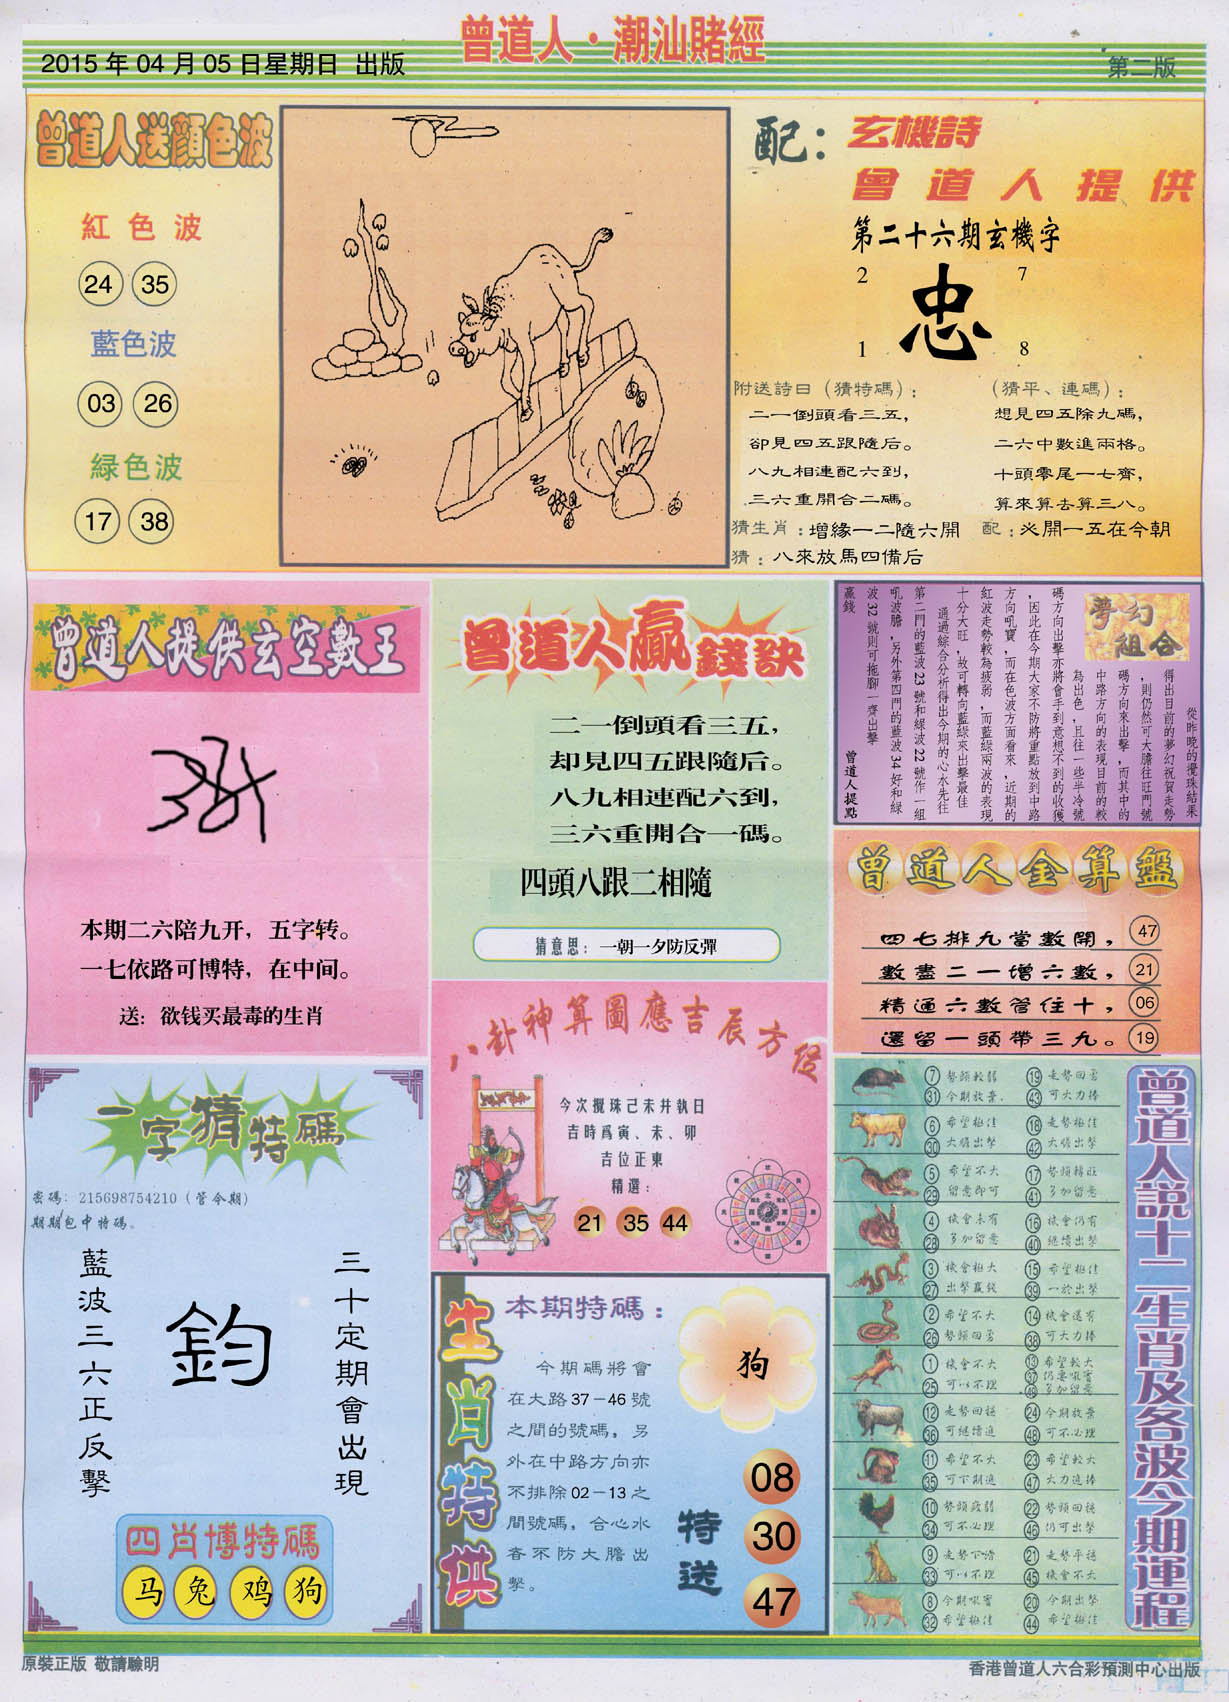 曾道人·潮汕賭經
2015 年 04 月 05 日星期日 出版
第二版
曾道人送顏色波
紅色波
24 35
藍色波
03 26
緑色波
17 38
配：
玄機詩
曾道人提供
第二十六期玄機字
2 7
忠
1 8
附送詩曰（猜特碼）：
二一倒頭看三五，
卻見四五跟隨后。
八九相連配六到，
三六重開合二碼。
（猜平、連碼）：
想見四五除九碼，
二六中數進兩格。
十頭零尾一七齊，
算來算去算三八。
猜生肖：增緣一二隨六開
配：必開一五在今朝
猜：八來放馬四備后
曾道人提供玄空數王
本期二六陪九开，五字转。
一七依路可博特，在中间。
送：欲钱买最毒的生肖
曾道人贏錢訣
二一倒頭看三五，
却見四五跟隨后。
八九相連配六到，
三六重開合一碼。
四頭八跟二相隨
猜意思：一朝一夕防反彈
夢幻組合
從昨晚的攪珠結果
得出目前的夢幻祝賀走勢
，則仍然可大膽往旺門號
碼方向來出擊，而其中的
中路方向的表現目前的較
為出色，且往一些半冷號
碼方向出擊亦將會手到意想不到的收獲
，因此在今期大家不防將重點放到中路
方向吼寶，而在色波方面看來，近期的
紅波走勢較為疲弱，而藍綠兩波的表現
十分大旺，故可轉向藍綠來出擊最佳
通過綜合分析得出今期的心水先往
第二門的藍波 23 號和綠波 22 號作一組
吼波膽，另外第四門的藍波 34 好和綠
波 32 號則可拖腳一齊出擊
贏錢
曾道人提點
曾道人金算盤
四七排九當數開， 47
數盡二一增六數， 21
精通六數管住十， 06
還留一頭帶三九。 19
八卦神算圖應吉辰方位
今次攪珠己未井執日
吉時爲寅、未、卯
吉位正東
精選：
21 35 44
一字猜特碼
密碼：215698754210（管今期）
期期包中特碼。
三十定期會出現
鈞
藍波三六正反擊
四肖博特碼
马 兔 鸡 狗
生肖特供
本期特碼：
今期碼將會
在大路37－46號
之間的號碼，另
外在中路方向亦
不排除02－13之
間號碼，合心水
者不防大膽出
擊。
狗
特送
08
30
47
曾道人説十二生肖及各波今期運程
7 勢頭較弱 19 走勢回勇
31 今期放棄 43 可大力捧
6 希望極佳 18 走勢極佳
30 大膽出擊 42 大膽出擊
5 希望不大 17 勢頭轉旺
29 留意即可 41 多加留意
4 機會未有 16 機會仍有
28 多加留意 40 繼續出擊
3 機會極大 15 希望極佳
27 出擊贏錢 39 一於出擊
2 希望不大 14 機會還有
26 勢頭回勇 38 可大力捧
1 機會不大 13 希望較大
25 可以不理 37 仍要吸寶
49 多加留意
12 走勢回穩 24 今期放棄
36 可繼續追 48 可不必理
11 希望不大 23 希望較大
35 可下期追 47 大力追捧
10 勢頭疲弱 22 勢頭回穩
34 可不必理 46 仍可出擊
9 走勢下滑 21 走勢平穩
33 可以不理 45 機會不大
8 今期吸寶 20 今期出擊
32 希望極佳 44 希望極佳
原裝正版 敬請驗明
香港曾道人六合彩預測中心出版